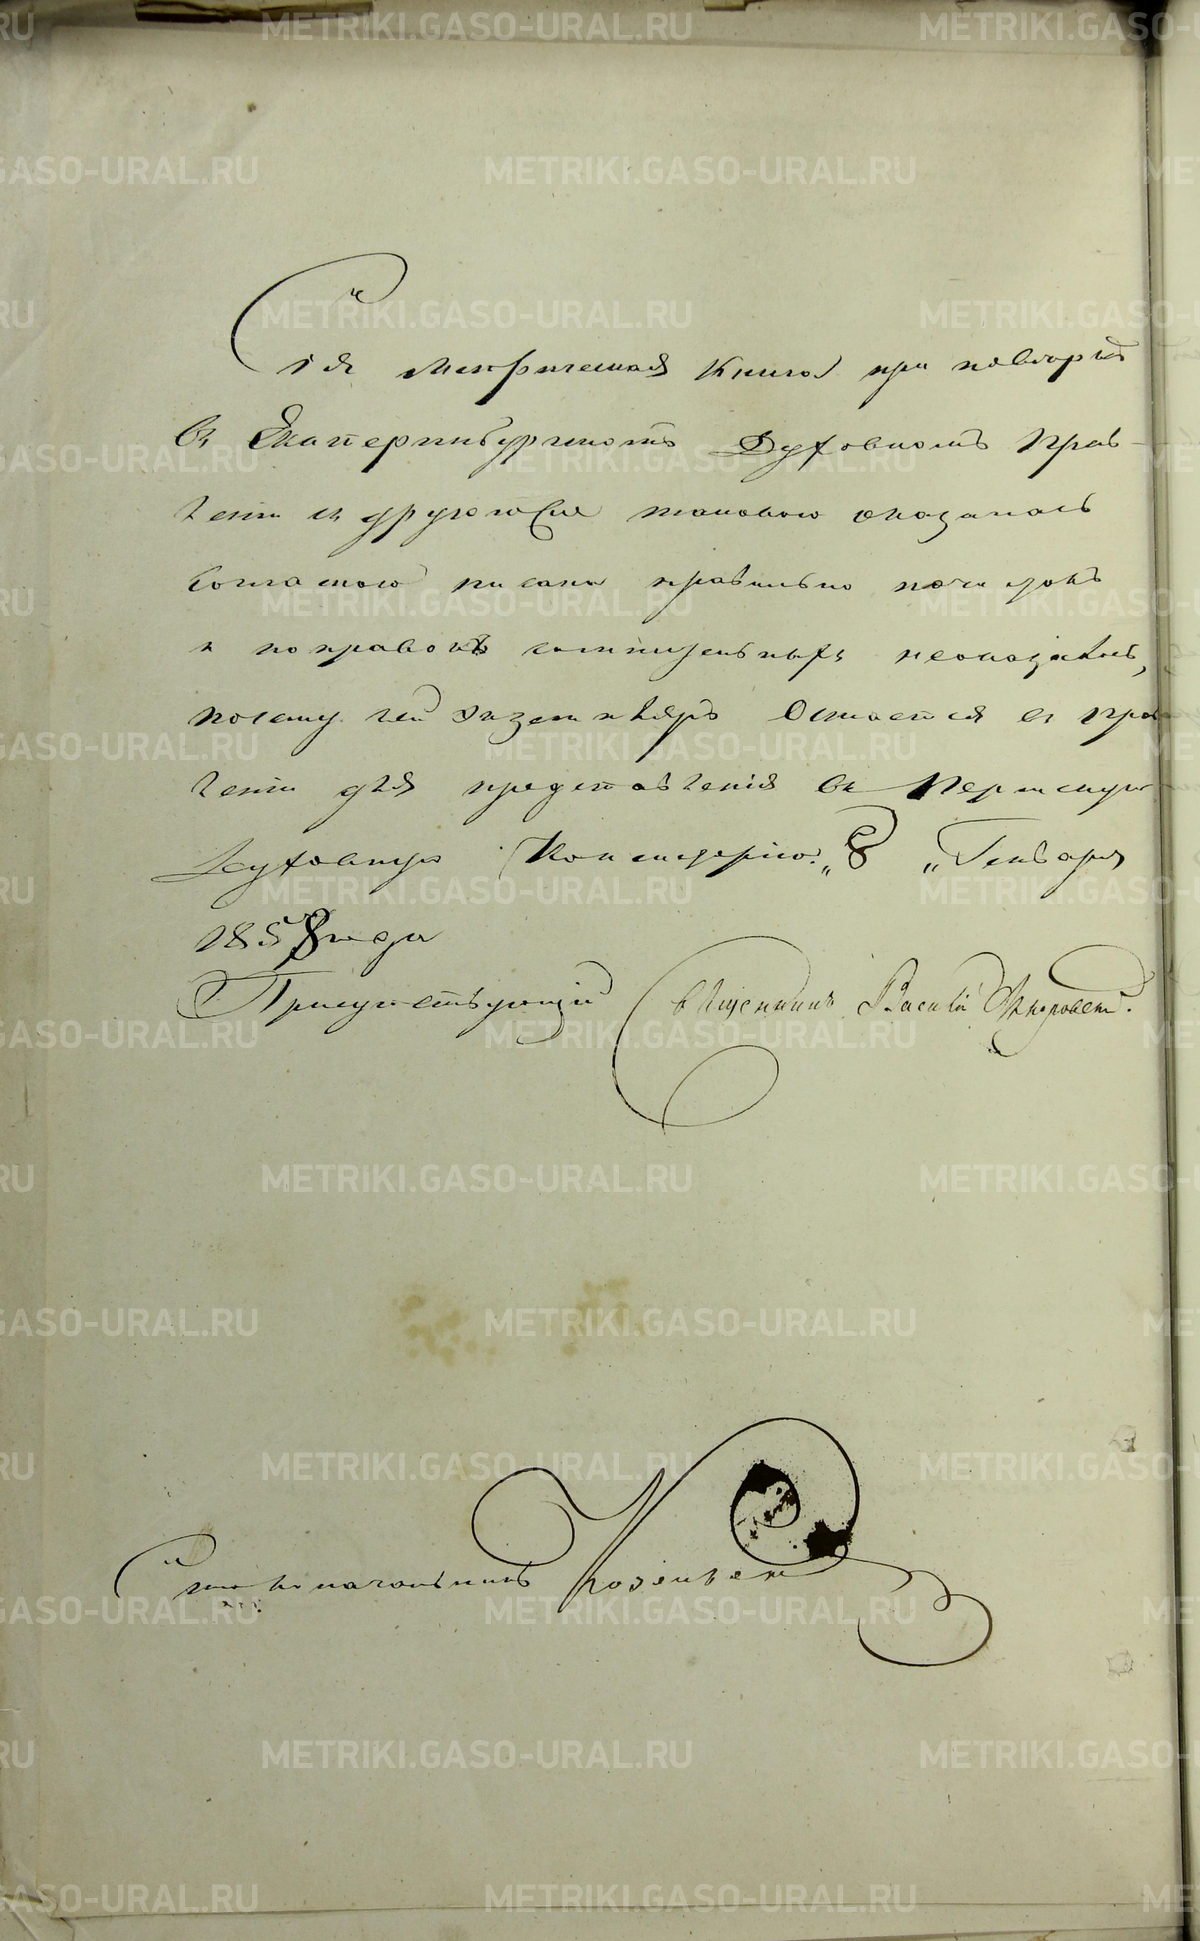 Сія Метрическая Книга при повѣркѣ
въ Екатеринбургскомъ Духовномъ Прав-
леніи съ другою таковою оказалась
согласною писана правильно почистокъ
и поправокъ сомнительныхъ неоказалось,
посему сей Экземпляръ Остается въ Прав
леніи для представленія въ Пермскую
Духовную Консисторію. „8„ Генваря
1858 года
Присутствующій Священникъ Василій
Столоначальникъ
METRIKI.GASO-URAL.RU